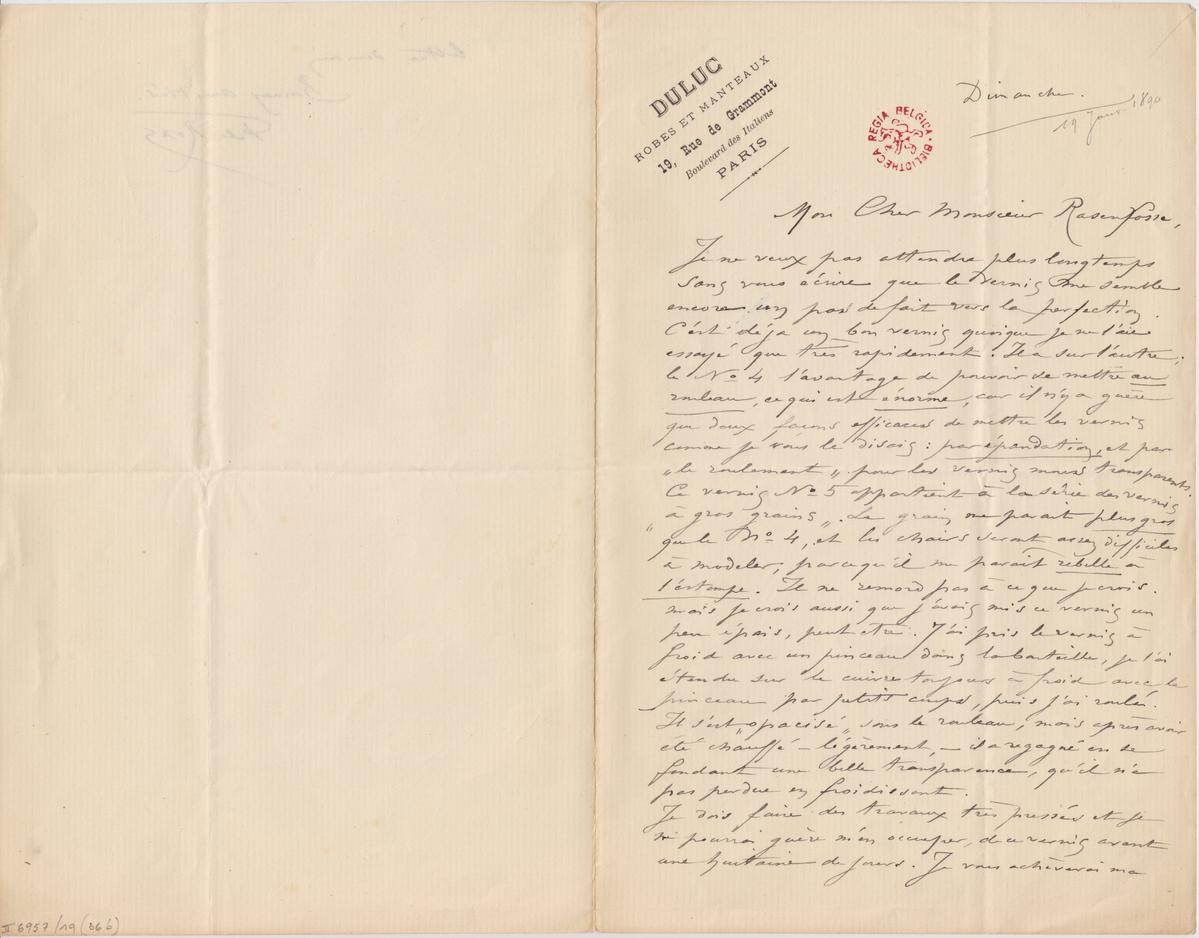 DULUC
ROBES ET MANTEAUX
19, Rue de Grammont
Boulevard des Italiens
PARIS
BIBLIOTHECA REGIA BELGICA
Dimanche.
19 Janv 1890
Mon Cher Monsieur Rassenfosse,
Je ne veux pas attendre plus longtemps
sans vous écrire que le vernis me semble
encore un pas de fait vers la perfection.
C'est déja un bon vernis quoique je ne l'aie
essayé que très rapidement. Il a sur l'autre,
le No 4 l'avantage de pouvoir se mettre au
rouleau, ce qui est énorme, car il n'y a guère
que deux façons efficaces de mettre les vernis
comme je vous le disais : par épandation, et par
„le roulement„ pour les vernis moins transparents.
Ce vernis No 5 appartient à la série des vernis
„à gros grains„. Le grain me parait plus gros
que le No 4, et les chairs seront assez difficiles
à modeler, parcequ'il me parait rebelle à
l'estompe. Il ne remord pas à ce que je crois.
mais je crois aussi que j'avais mis ce vernis un
peu épais, peut etre. J'ai pris le vernis à
froid avec un pinceau dans la bouteille, je l'ai
étendu sur le cuivre toujours à froid avec le
pinceau par petits coups, puis j'ai roulé.
Il s'est „opacisé„ sous le rouleau, mais après avoir
été chauffé – légèrement, – il a regagné en se
fondant une belle transparence, qu'il n'a
pas perdue en froidissant.
Je dois faire des travaux très pressés et je
ne pourrai guère m'en occuper, de ce vernis avant
une huitaine de jours. Je vous achèverai ma
II 6957/19 (36 b)